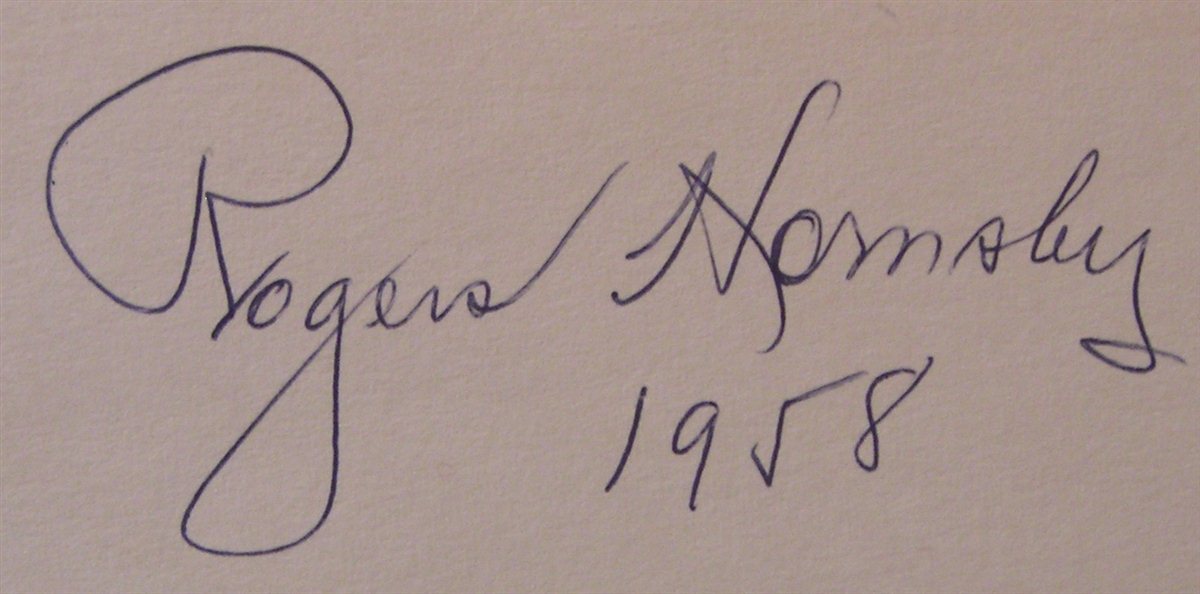 Rogers Hornsby
1958